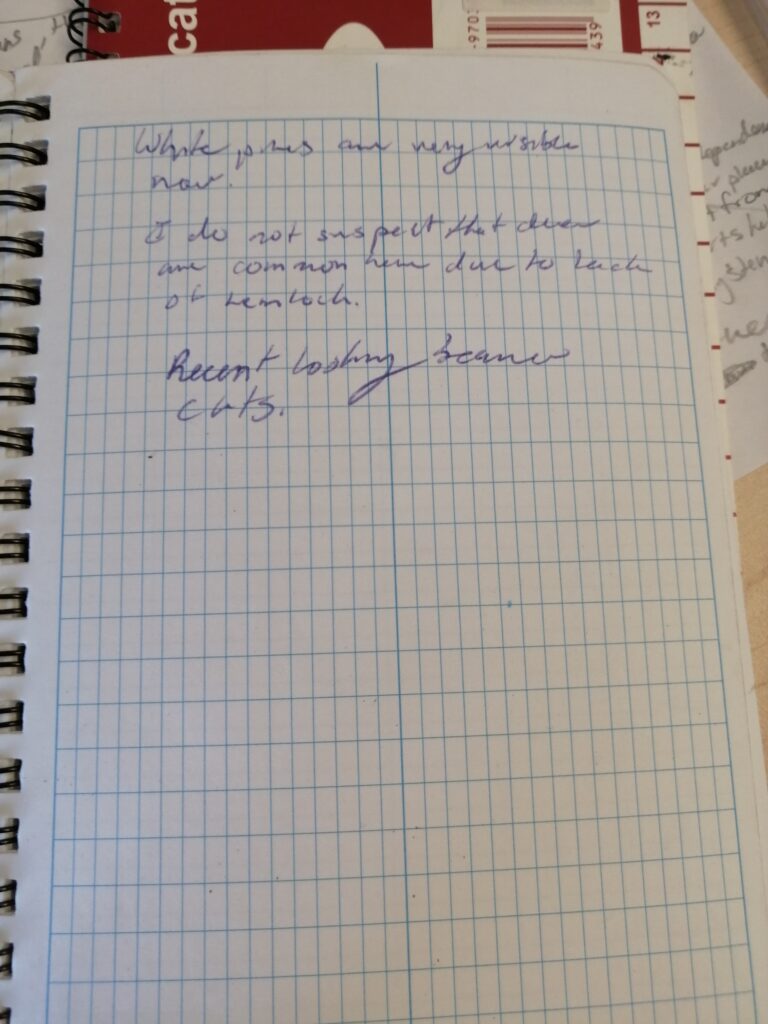 cat
-9703
439
13
4
White pines are very visible
now.
I do not suspect that deer
are common here due to lack
of hemlock.
Recent looking beaver
cuts.